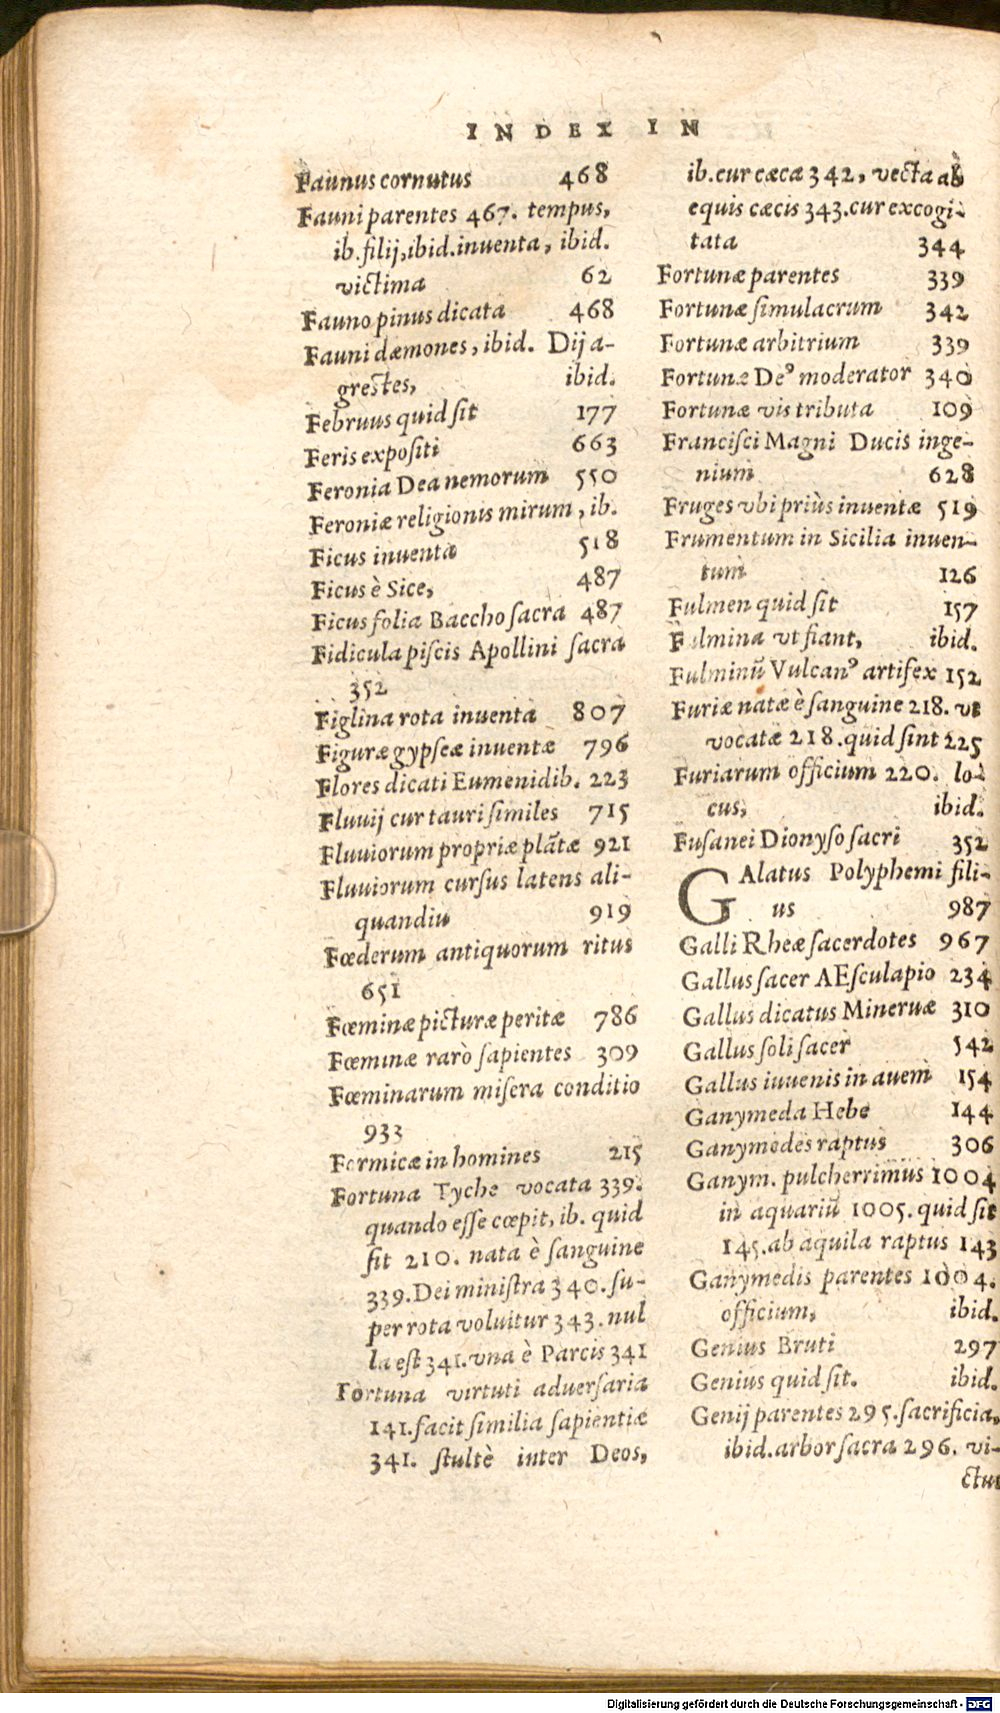 INDEX IN
Faunus cornutus 468
Fauni parentes 467. tempus,
ib. filij, ibid. inuenta, ibid.
victima 62
Fauno pinus dicata 468
Fauni dæmones, ibid. Dij a-
grestes, ibid.
Februus quid sit 177
Feris expositi 663
Feronia Dea nemorum 550
Feroniæ religionis mirum, ib.
Ficus inuenta 518
Ficus è Sice, 487
Ficus folia Baccho sacra 487
Fidicula piscis Apollini sacra
352
Figlina rota inuenta 807
Figuræ gypseæ inuentæ 796
Flores dicati Eumenidib. 223
Fluuij cur tauri similes 715
Fluuiorum propriæ plātæ 921
Fluuiorum cursus latens ali-
quandiu 919
Fœderum antiquorum ritus
651
Fœminæ picturæ peritæ 786
Fœminæ rarò sapientes 309
Fœminarum misera conditio
933
Formicæ in homines 215
Fortuna Tyche vocata 339.
quando esse cœpit, ib. quid
sit 210. nata è sanguine
339. Dei ministra 340. su-
per rota voluitur 343. nul
la est 341. vna è Parcis 341
Fortuna virtuti aduersaria
141. facit similia sapientiæ
341. stultè inter Deos,
ib. cur cæca 342, vecta ab
equis cæcis 343. cur excogi-
tata 344
Fortunæ parentes 339
Fortunæ simulacrum 342
Fortunæ arbitrium 339
Fortunæ Deꝰ moderator 340
Fortunæ vis tributa 109
Francisci Magni Ducis inge-
nium 628
Fruges vbi priùs inuentæ 519
Frumentum in Sicilia inuen-
tum 126
Fulmen quid sit 157
Fulmina vt fiant, ibid.
Fulminū Vulcanꝰ artifex 152
Furiæ natæ è sanguine 218. vt
vocatæ 218. quid sint 225
Furiarum officium 220. lo-
cus, ibid.
Fusanei Dionyso sacri 352
GAlatus Polyphemi fili-
us 987
Galli Rheæ sacerdotes 967
Gallus sacer AEsculapio 234
Gallus dicatus Mineruæ 310
Gallus soli sacer 542
Gallus iuuenis in auem 154
Ganymeda Hebe 144
Ganymedes raptus 306
Ganym. pulcherrimus 1004
in aquariū 1005. quid sit
145. ab aquila raptus 143
Ganymedis parentes 1004.
officium, ibid.
Genius Bruti 297
Genius quid sit. ibid.
Genij parentes 295. sacrificia,
ibid. arbor sacra 296. vi-
Digitalisierung gefördert durch die Deutsche Forschungsgemeinschaft - DFG